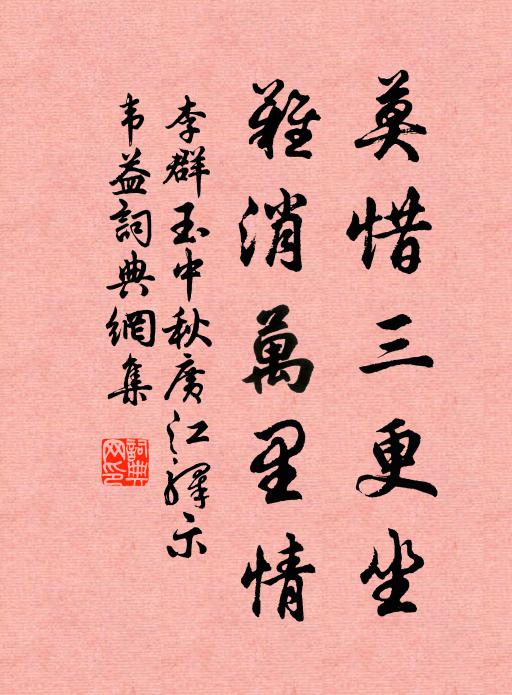 莫惜三更坐
難消萬里情
李群玉中秋廣江驛示
韦益詞典網集
詞典网印